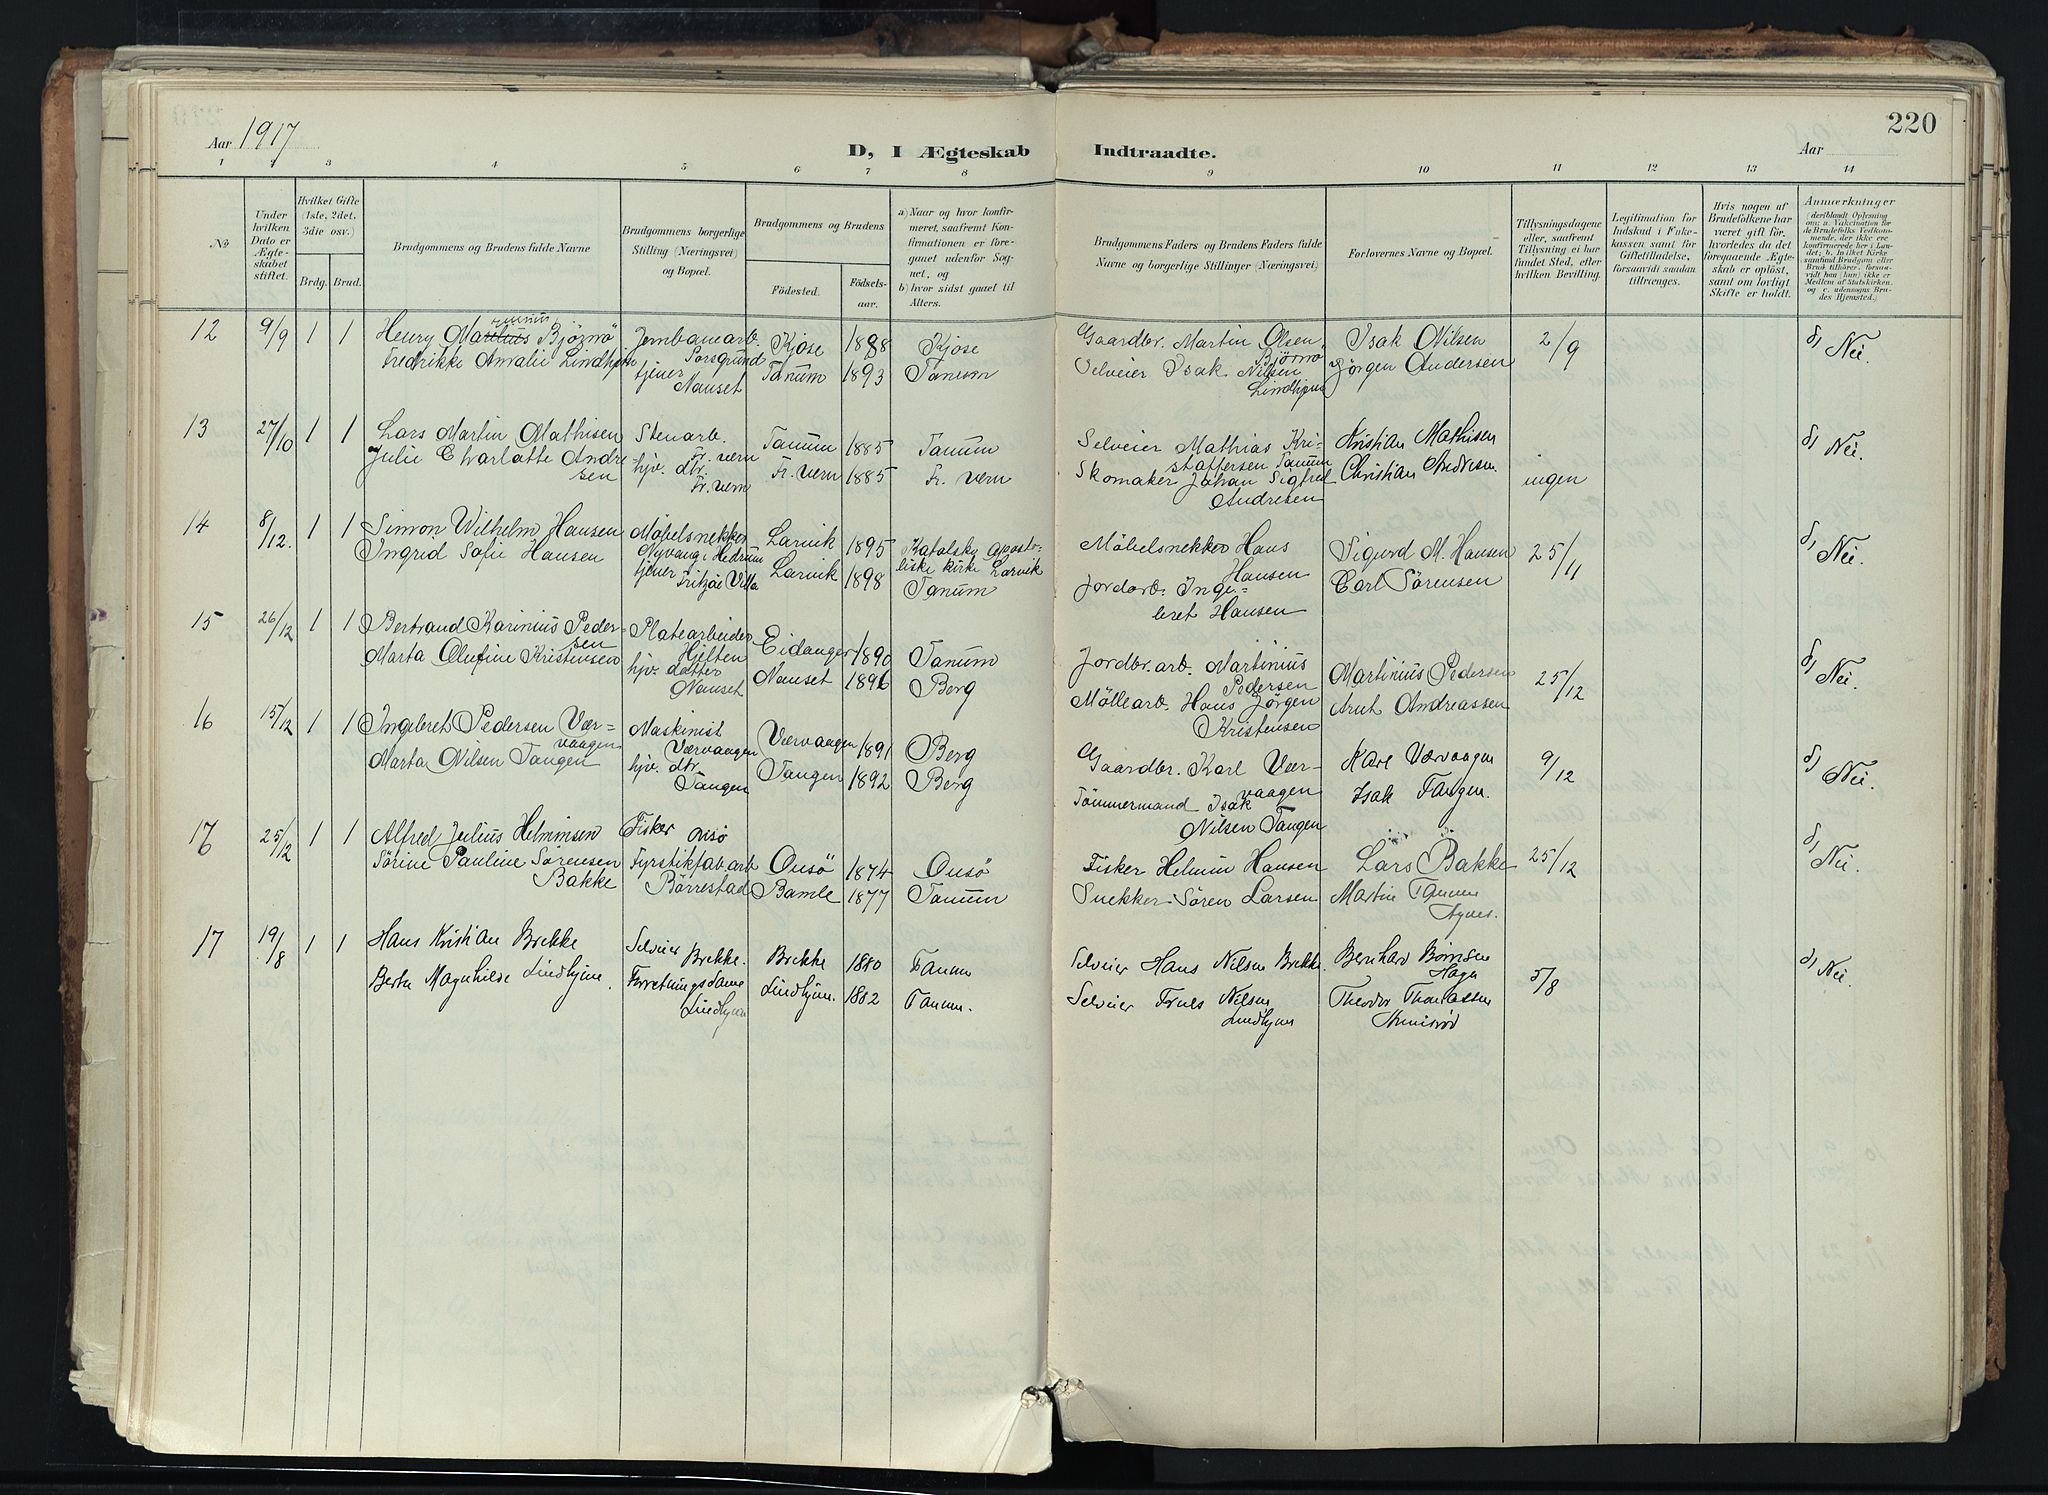 220
Aar 1917
D, I Ægteskab Indtraadte.
Aar
1 2 3 4 5 6 7 8 9 10 11 12 13 14
No
Under hvilken Dato er Ægteskabet stiftet.
Hvilket Gifte (1ste, 2det, 3die osv.)
Brdg. Brud.
Brudgommens og Brudens fulde Navne
Brudgommens borgerlige Stilling (Næringsvei) og Bopæl.
Brudgommens og Brudens
Födested.
Födselsaar.
a) Naar og hvor konfirmeret, saafremt Konfirmationen er foregaaet udenfor Sognet, og
b) hvor sidst gaaet til Alters.
Brudgommens Faders og Brudens Faders fulde Navne og borgerlige Stillinger (Næringsvei)
Forlovernes Navne og Bopæl.
Tillysningsdagene eller, saafremt Tillysning ei har fundet Sted, efter hvilken Bevilling.
Legitimation for Indskud i Enkekassen samt for Giftetilladelse, forsaavidt saadan tiltrænges.
Hvis nogen af Brudefolkene har været gift för, hvorledes da det foregaaende Ægteskab er oplöst, samt om lovligt Skifte er holdt.
Anmærkninger
(deriblandt Oplysning om: a. Vakcination for de Brudefolks Vedkommende, der ikke ere konfirmerede her i Landet; b. Invilket Kirkesamfund Brudgom eller Brud tilhörer, forsaavidt han (hun) ikke er Medlem af Statskirken, og c. udensogns Brudes Hjemsted.)
12 9/9 1 1 Henry Bjørnø Jernbanearb. Porsgrund Kjose 1888 Kjose Gaardbr. Martin Olsen Bjørnø Isak Nilsen 2/9 Nei.
Fredrikke Amalie Lindhjem tjener Nanset Tanum 1893 Tanum Selveier Isak Nilsen Lindhjem Jörgen Andersen
13 27/10 1 1 Lars Martin Mathisen Stenarb. Fr. værn Tanum 1885 Tanum Selveier Mathias Kristoffersen Tanum Kristian Mathisen Nei.
Julie Charlotte Andresen hjv. dtr. Fr. værn Fr. værn 1885 Fr. værn Skomaker Johan Sigfred Andresen Christian Andresen ingen
14 8/12. 1 1 Simon Wilhelm Hansen Möbelsnekker Nyvang i Hedrum Larvik 1895 Katolsky Apostoliske kirke Larvik Möbelsnekker Hans Hansen Sigurd M. Hansen 25/11 Nei.
Ingrid Sofie Hansen tjener Fritzöe Villa Larvik 1898 Tanum Jordarb. Ingeberet Hansen Carl Sörensen
15 26/12 1 1 Bertrand Karinius Pedersen Platearbeider Hjelten Eidanger 1890 Tanum Jordbr. arb. Martinius Pedersen Martinius Pedersen 25/12 Nei.
Marta Olufine Kristensen hjv. datter Nanset Nanset 1896 Berg Möllearb. Hans Jörgen Kristensen Arnt Andreassen
16 15/12 1 1 Ingeberet Pedersen Værvaagen Maskinist Værvaagen Værvaagen 1891 Berg Gaardbr. Karl Værvaagen Karl Værvaagen 9/12 Nei.
Marta Nilsen Tangen hjv. dtr. Tangen Tangen 1892 Berg Tömmermand Isak Nilsen Tangen Isak Tangen.
17 25/12 1 1 Alfred Julius Helminsen Fisker Onsö Onsö 1874 Onsö Fisker Helmin Hansen Lars Bakke 25/12 Nei.
Sörine Pauline Sörensen Bakke Fyrstikfab. arb. Börrestad Bamle 1877 Tanum Snekker Sören Larsen Martin Tanum
17 19/8 1 1 Hans Kristian Brekke Selveier Brekke. Brekke 1880 Tanum Selveier Hans Nilsen Brekke. Bernhard Børresen Hagn 5/8 Nei.
Berta Magnhilde Lindhjem. Forretningsdame Lindhjem Lindhjem. 1882 Tanum. Selveier Truls Nilsen Lindhjem Theodor Thomassen